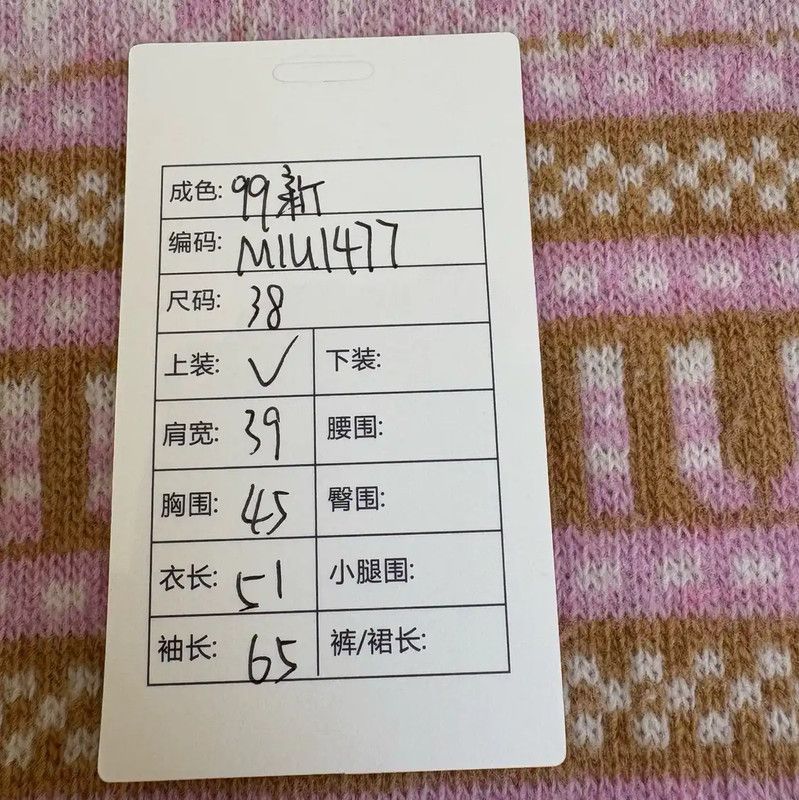 成色: 99新
编码: MIU1477
尺码: 38
上装: ✓ 下装:
肩宽: 39 腰围:
胸围: 45 臀围:
衣长: 51 小腿围:
袖长: 65 裤/裙长:
IU